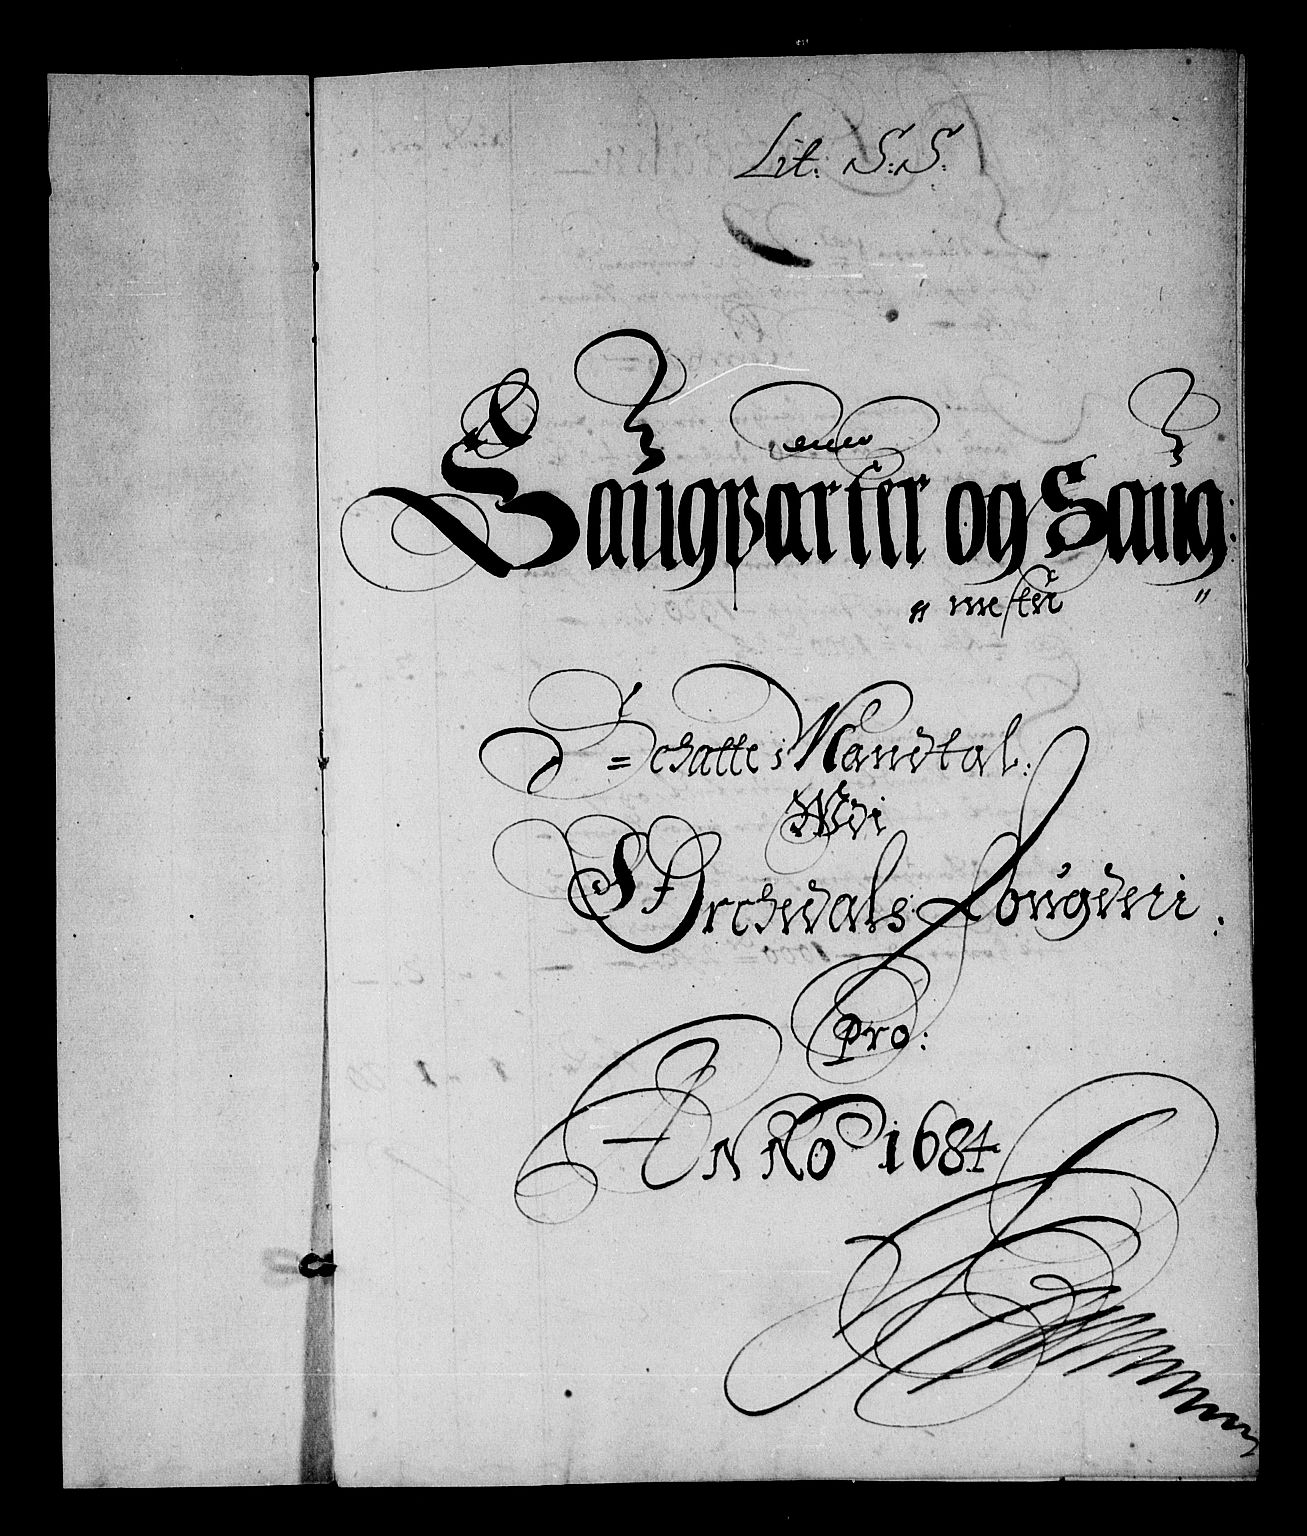 Lit: S:S:
Saugvarter og Saug:
mester
Schatte Mandtal:
Wdi
Orchedals Fougderi.
Pro:
Anno 1684